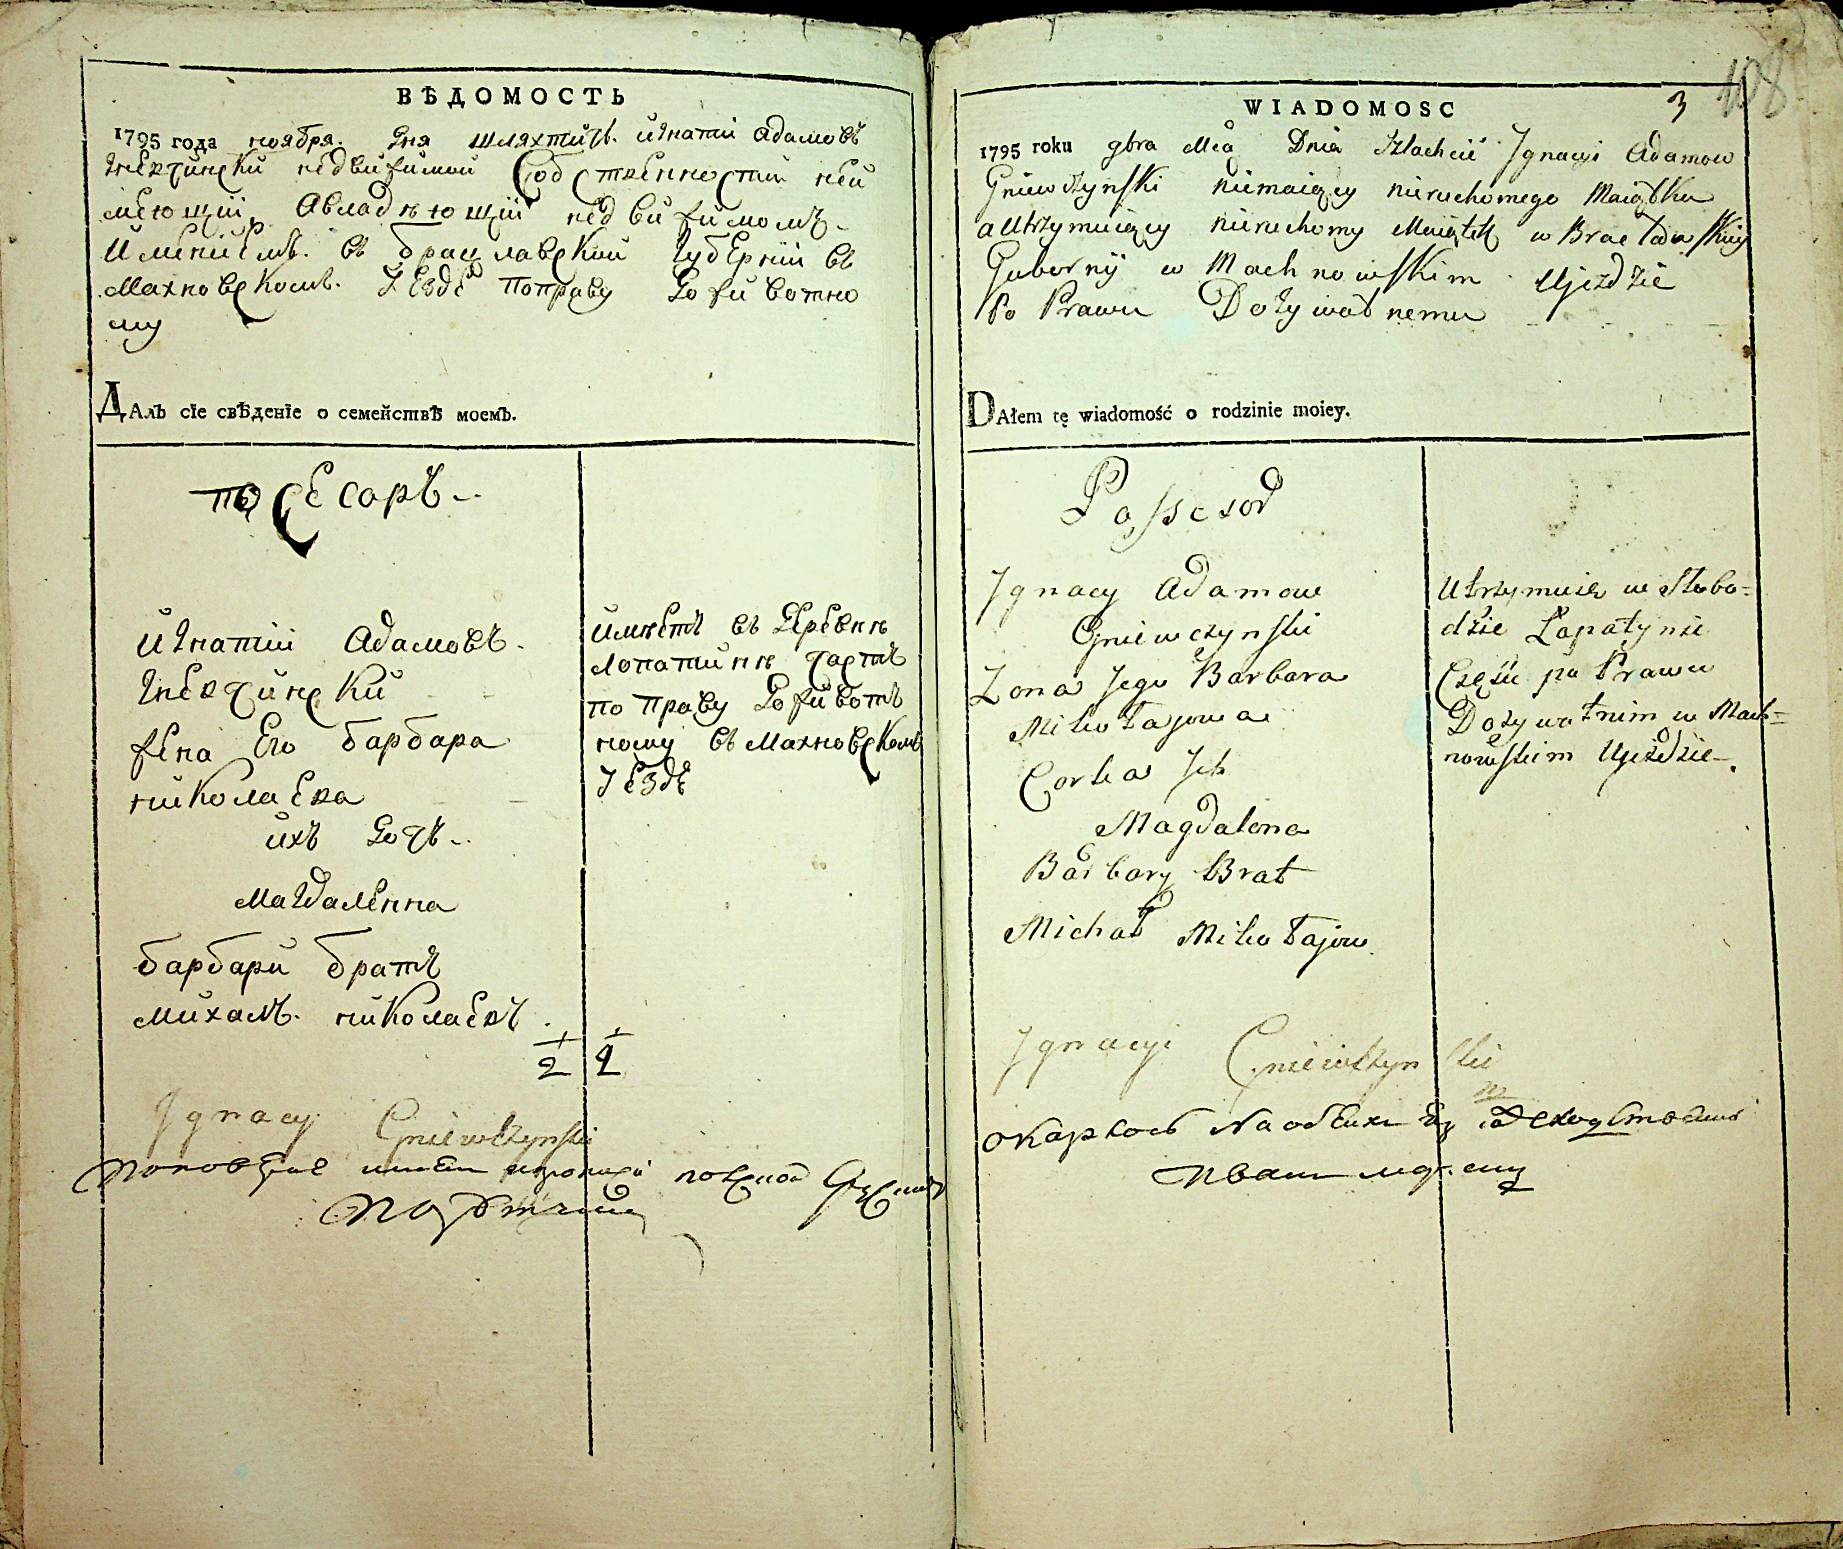 ВѢДОМОСТЬ
1795 года ноября. дня шляхтичъ. игнатий адамовъ
гневчинский недвижимой собственности неи
меющий, авладеющий недвижимомъ
имениемъ. въ брацлавской губернии въ
махновскомъ. уезде поправу доживотно
му
ДАлъ сїе свѣденїе о семействѣ моемъ.
посесоръ
игнатий адамовъ.
гневчинский
жена его барбара
николаева
ихъ дочь
магдаленна
барбари братъ
михалъ. николаевъ
имеетъ въ деревне
лопатинне часть
по праву доживоть
ному въ махновскомъ
уезде
2 2
Ignacy Gniewczynski
WIADOMOSC
3
108
1795 roku 9bra Mca Dnia Szlachcic Ignacyi Adamow
Gniewczynski niemaiący nieruchomego Maiątku
a Utrzymuiący nieruchomy Maiątek w Bracławskiey
Gubernij w Machnowskim Ujezdzie
Po Prawu Dożywotnemu
DAłem tę wiadomość o rodzinie moiey.
Possesor
Ignacy Adamow
Gniewczynski
Zona Jego Barbara
Mikołajowa
Corka Ich
Magdalena
Barbary Brat
Michał Mikołajow
Utrzymuie w Słobo=
dzie Łapatynie
Częśc po Prawu
Dożywotnim w Mach=
nowskim Ujezdzie
Ignacyi Gniewczynski